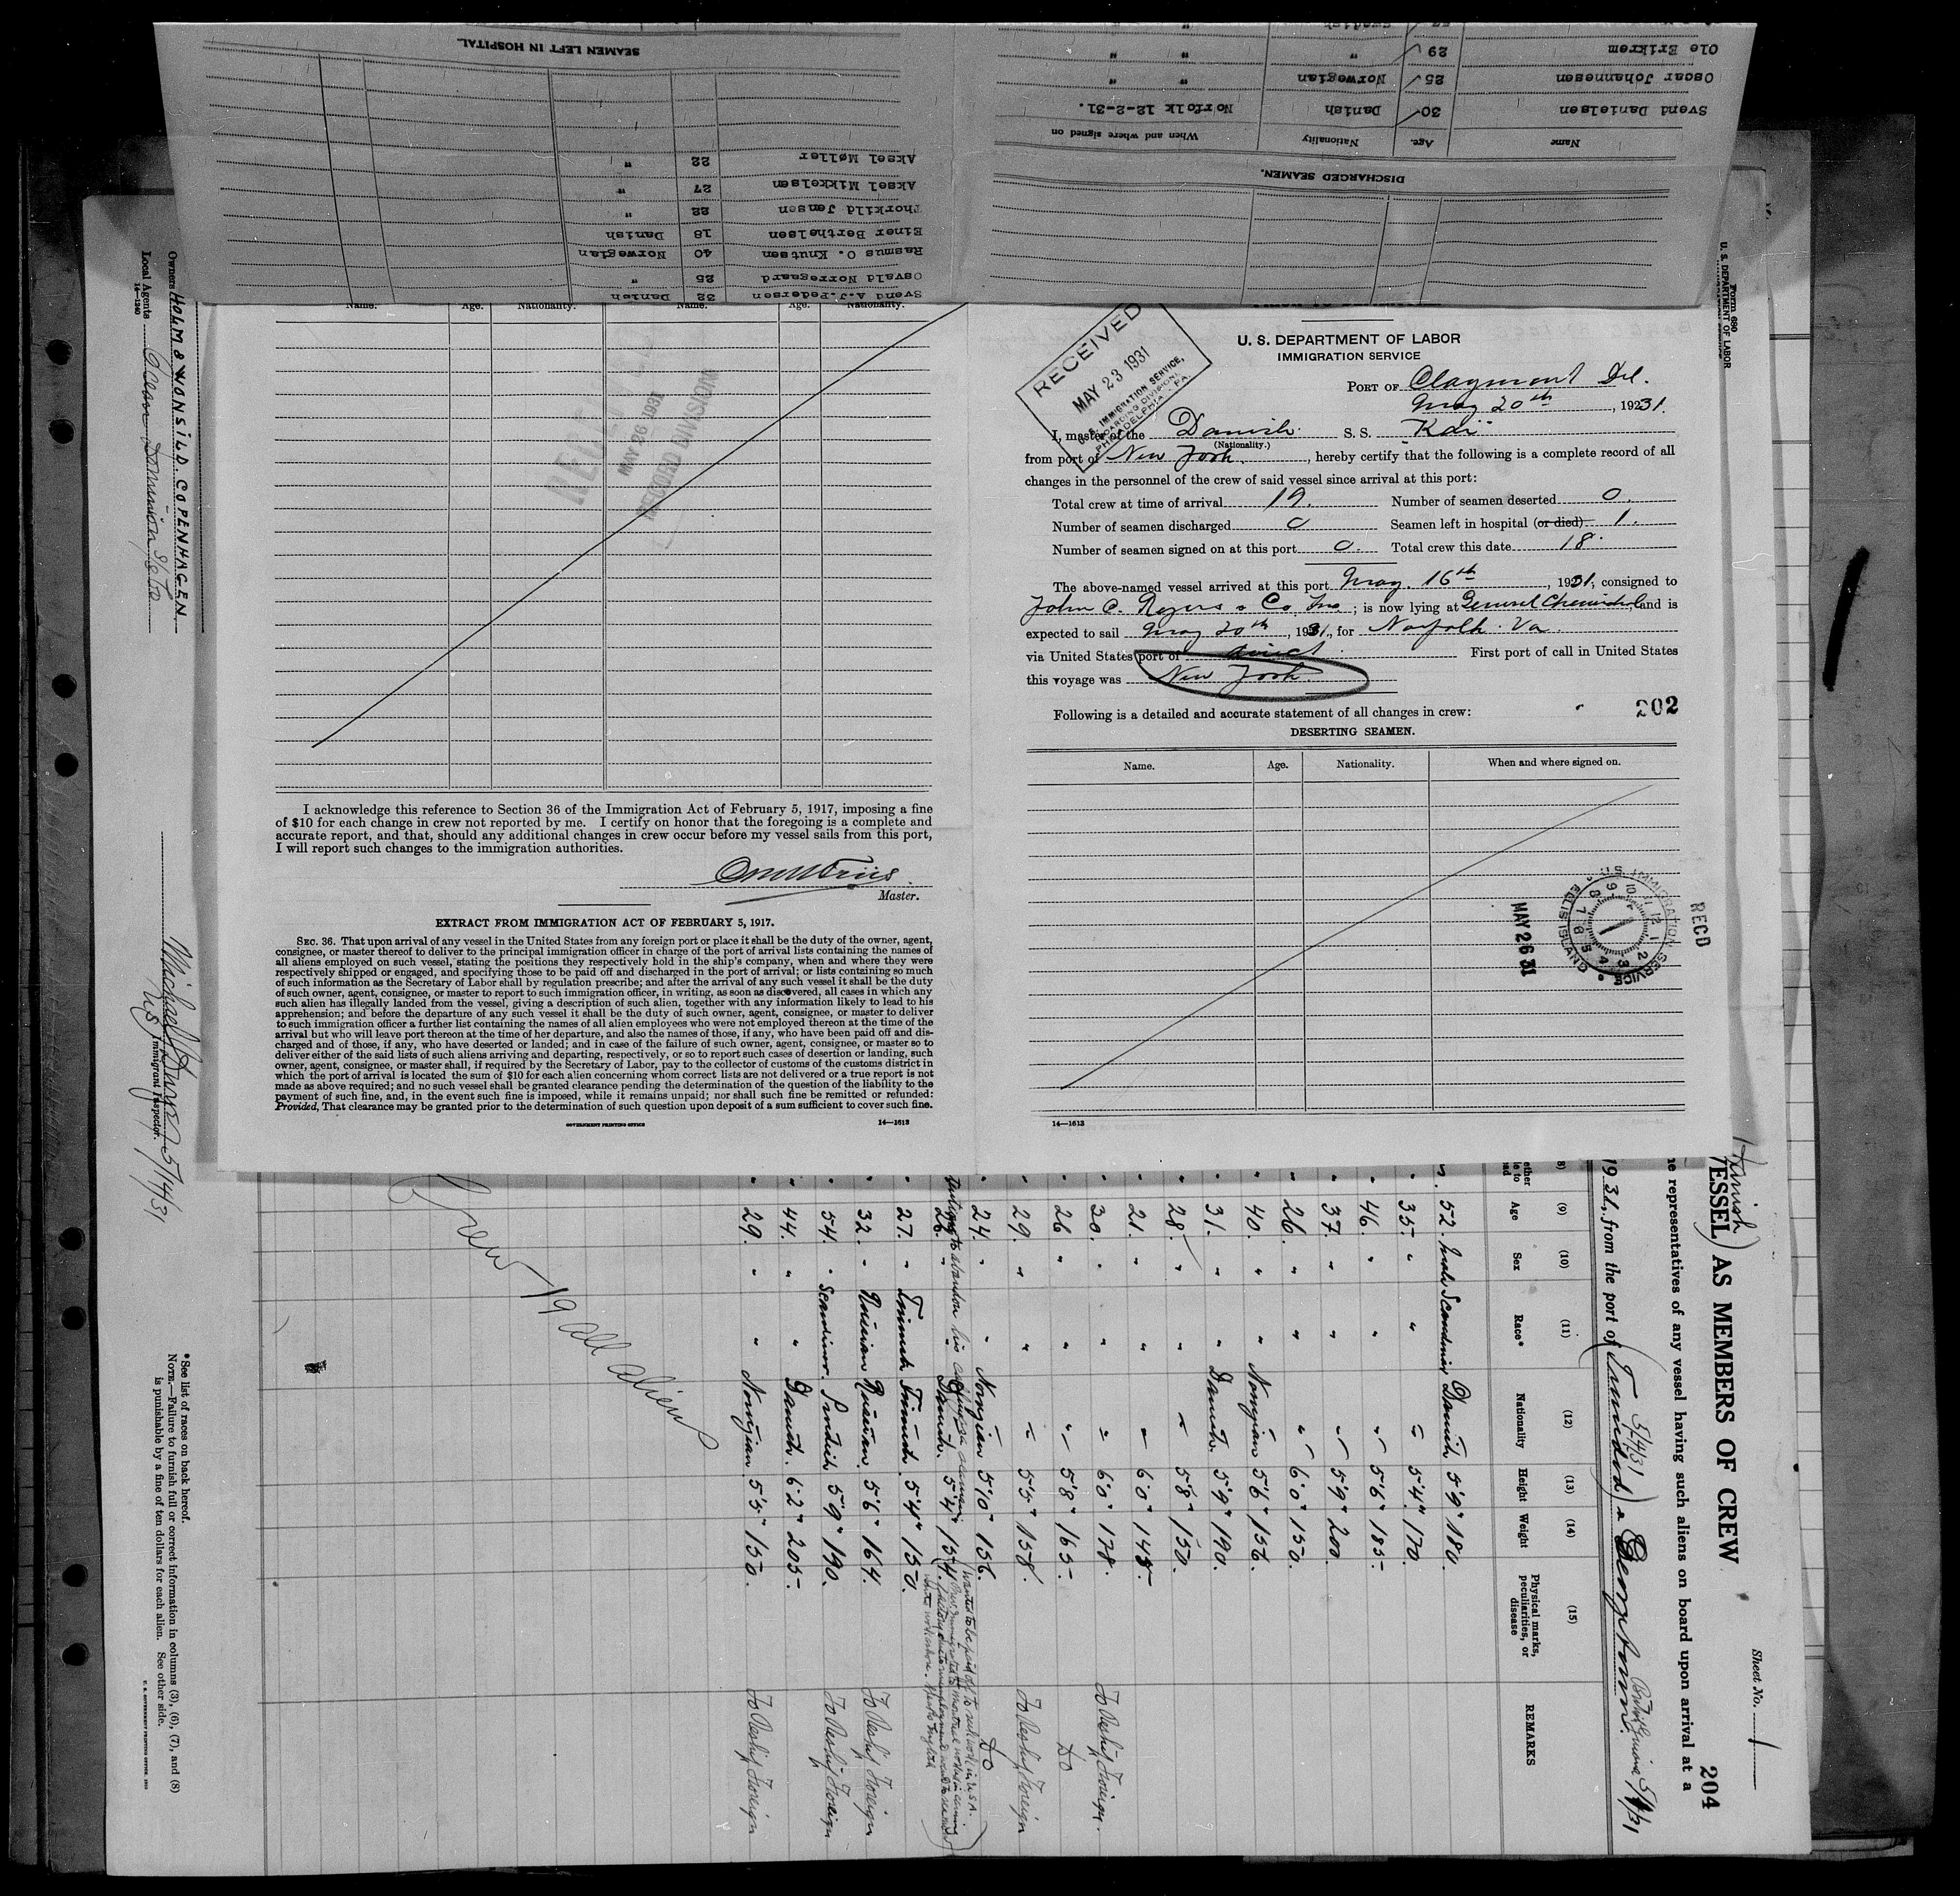 SEAMEN LEFT IN HOSPITAL.
Aksel Møller 22 "
Aksel Mikkelsen 27 "
Thorkild Jensen 22 "
Einer Berthelsen 18 Danish
Rasmus O. Knutsen 40 Norwegian
Osvald Norregaard 25
Svend A.J. Pedersen 32 Danish
DISCHARGED SEAMEN.
Name Age. Nationality When and where signed on
Svend Danielsen 30 Danish Norfolk 12-2-31.
Oscar Johannesen 25 Norwegian " "
Ole Erikrem 29 " " "
Swedish
Name. Age. Nationality. Name. Age. Nationality.
RECEIVED
MAY 26 1931
RECORD DIVISION
I acknowledge this reference to Section 36 of the Immigration Act of February 5, 1917, imposing a fine
of $10 for each change in crew not reported by me. I certify on honor that the foregoing is a complete and
accurate report, and that, should any additional changes in crew occur before my vessel sails from this port,
I will report such changes to the immigration authorities.
Master.
EXTRACT FROM IMMIGRATION ACT OF FEBRUARY 5, 1917.
SEC. 36. That upon arrival of any vessel in the United States from any foreign port or place it shall be the duty of the owner, agent,
consignee, or master thereof to deliver to the principal immigration officer in charge of the port of arrival lists containing the names of
all aliens employed on such vessel, stating the positions they respectively hold in the ship's company, when and where they were
respectively shipped or engaged, and specifying those to be paid off and discharged in the port of arrival; or lists containing so much
of such information as the Secretary of Labor shall by regulation prescribe; and after the arrival of any such vessel it shall be the duty
of such owner, agent, consignee, or master to report to such immigration officer, in writing, as soon as discovered, all cases in which any
such alien has illegally landed from the vessel, giving a description of such alien, together with any information likely to lead to his
apprehension; and before the departure of any such vessel it shall be the duty of such owner, agent, consignee, or master to deliver
to such immigration officer a further list containing the names of all alien employees who were not employed thereon at the time of the
arrival but who will leave port thereon at the time of her departure, and also the names of those, if any, who have been paid off and dis-
charged and of those, if any, who have deserted or landed; and in case of the failure of such owner, agent, consignee, or master so to
deliver either of the said lists of such aliens arriving and departing, respectively, or so to report such cases of desertion or landing, such
owner, agent, consignee, or master shall, if required by the Secretary of Labor, pay to the collector of customs of the customs district in
which the port of arrival is located the sum of $10 for each alien concerning whom correct lists are not delivered or a true report is not
made as above required; and no such vessel shall be granted clearance pending the determination of the question of the liability to the
payment of such fine, and, in the event such fine is imposed, while it remains unpaid; nor shall such fine be remitted or refunded:
Provided, That clearance may be granted prior to the determination of such question upon deposit of a sum sufficient to cover such fine.
GOVERNMENT PRINTING OFFICE 14—1613
RECEIVED
MAY 23 1931
U.S. IMMIGRATION SERVICE,
BOARDING DIVISION,
PHILADELPHIA PA.
U. S. DEPARTMENT OF LABOR
IMMIGRATION SERVICE
PORT OF Claymont Del.
May 20th, 19231.
I, master of the Danish S. S. "Kai"
(Nationality.)
from port of New York, hereby certify that the following is a complete record of all
changes in the personnel of the crew of said vessel since arrival at this port:
Total crew at time of arrival 19. Number of seamen deserted 0.
Number of seamen discharged 0 Seamen left in hospital (or died) 1.
Number of seamen signed on at this port 0. Total crew this date 18.
The above-named vessel arrived at this port May 16th, 1931, consigned to
John C. Rogers & Co Inc; is now lying at General Chemical C and is
expected to sail May 20th, 1931, for Norfolk Va.
via United States port of direct First port of call in United States
this voyage was New York
Following is a detailed and accurate statement of all changes in crew: 202
DESERTING SEAMEN.
Name. Age. Nationality. When and where signed on.
RECD
MAY 26 31
U.S. IMMIGRATION SERVICE
ELLIS ISLAND
14—1613
Form 680
U. S. DEPARTMENT OF LABOR
Owners HOLM & WONSILD. COPENHAGEN.
Local Agents Ocean Dominion
14—1240
Immigrant Inspector.
5/14/31
Sheet No. 1
204
Danish
VESSEL) AS MEMBERS OF CREW
representatives of any vessel having such aliens on board upon arrival at a
1931, from the port of Trinidad & Georgetown.
(9) (10) (11) (12) (13) (14) (15)
Age Sex Race* Nationality Height Weight Physical marks, peculiarities, or disease REMARKS
52. male Scandinav Danish 5'9" 180.
35. " " " 5'4" 170.
46. " " " 5'6" 185.
37. " " " 5'9" 200.
26. " " " 6'0" 150.
40. " " Norvgian 5'6" 156.
31. " " Danish. 5'9" 190.
28. " " " 5'8" 150.
21. " " " 6'0" 145.
30. " " " 6'0" 178. To Reship Foreign.
26 " " " 5'8" 165. DO
29. " " " 5'5" 158. To Reship Foreign
24. " " Norvgian 5'10" 156. DO
Danish. 5'4" 154.
27. " Finnish Finnish 5'4" 150.
32. " Russian Russian 5'6" 164. To Reship Foreign
54. " Scandinav. Swedish 5'9" 190. To Reship Foreign
44. " " Danish. 6'2" 205.
29. " " Norvgian 5'5" 150. To Reship Foreign
Crew 19 all aliens
*See list of races on back hereof.
NOTE.—Failure to furnish full or correct information in columns (3), (6), (7), and (8)
is punishable by a fine of ten dollars for each alien. See other side.